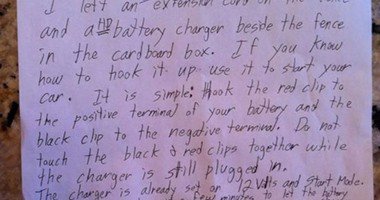 I left an extension cord on the
and a battery charger beside the fence
in the cardboard box. If you know
how to hook it up use it to start your
car. It is simple: Hook the red clip to
the positive terminal of your battery and the
black clip to the negative terminal. Do not
touch the black & red clips together while
the charger is still plugged in.
The charger is already set on 12 Volts and Start Mode.
a few minutes to let the battery